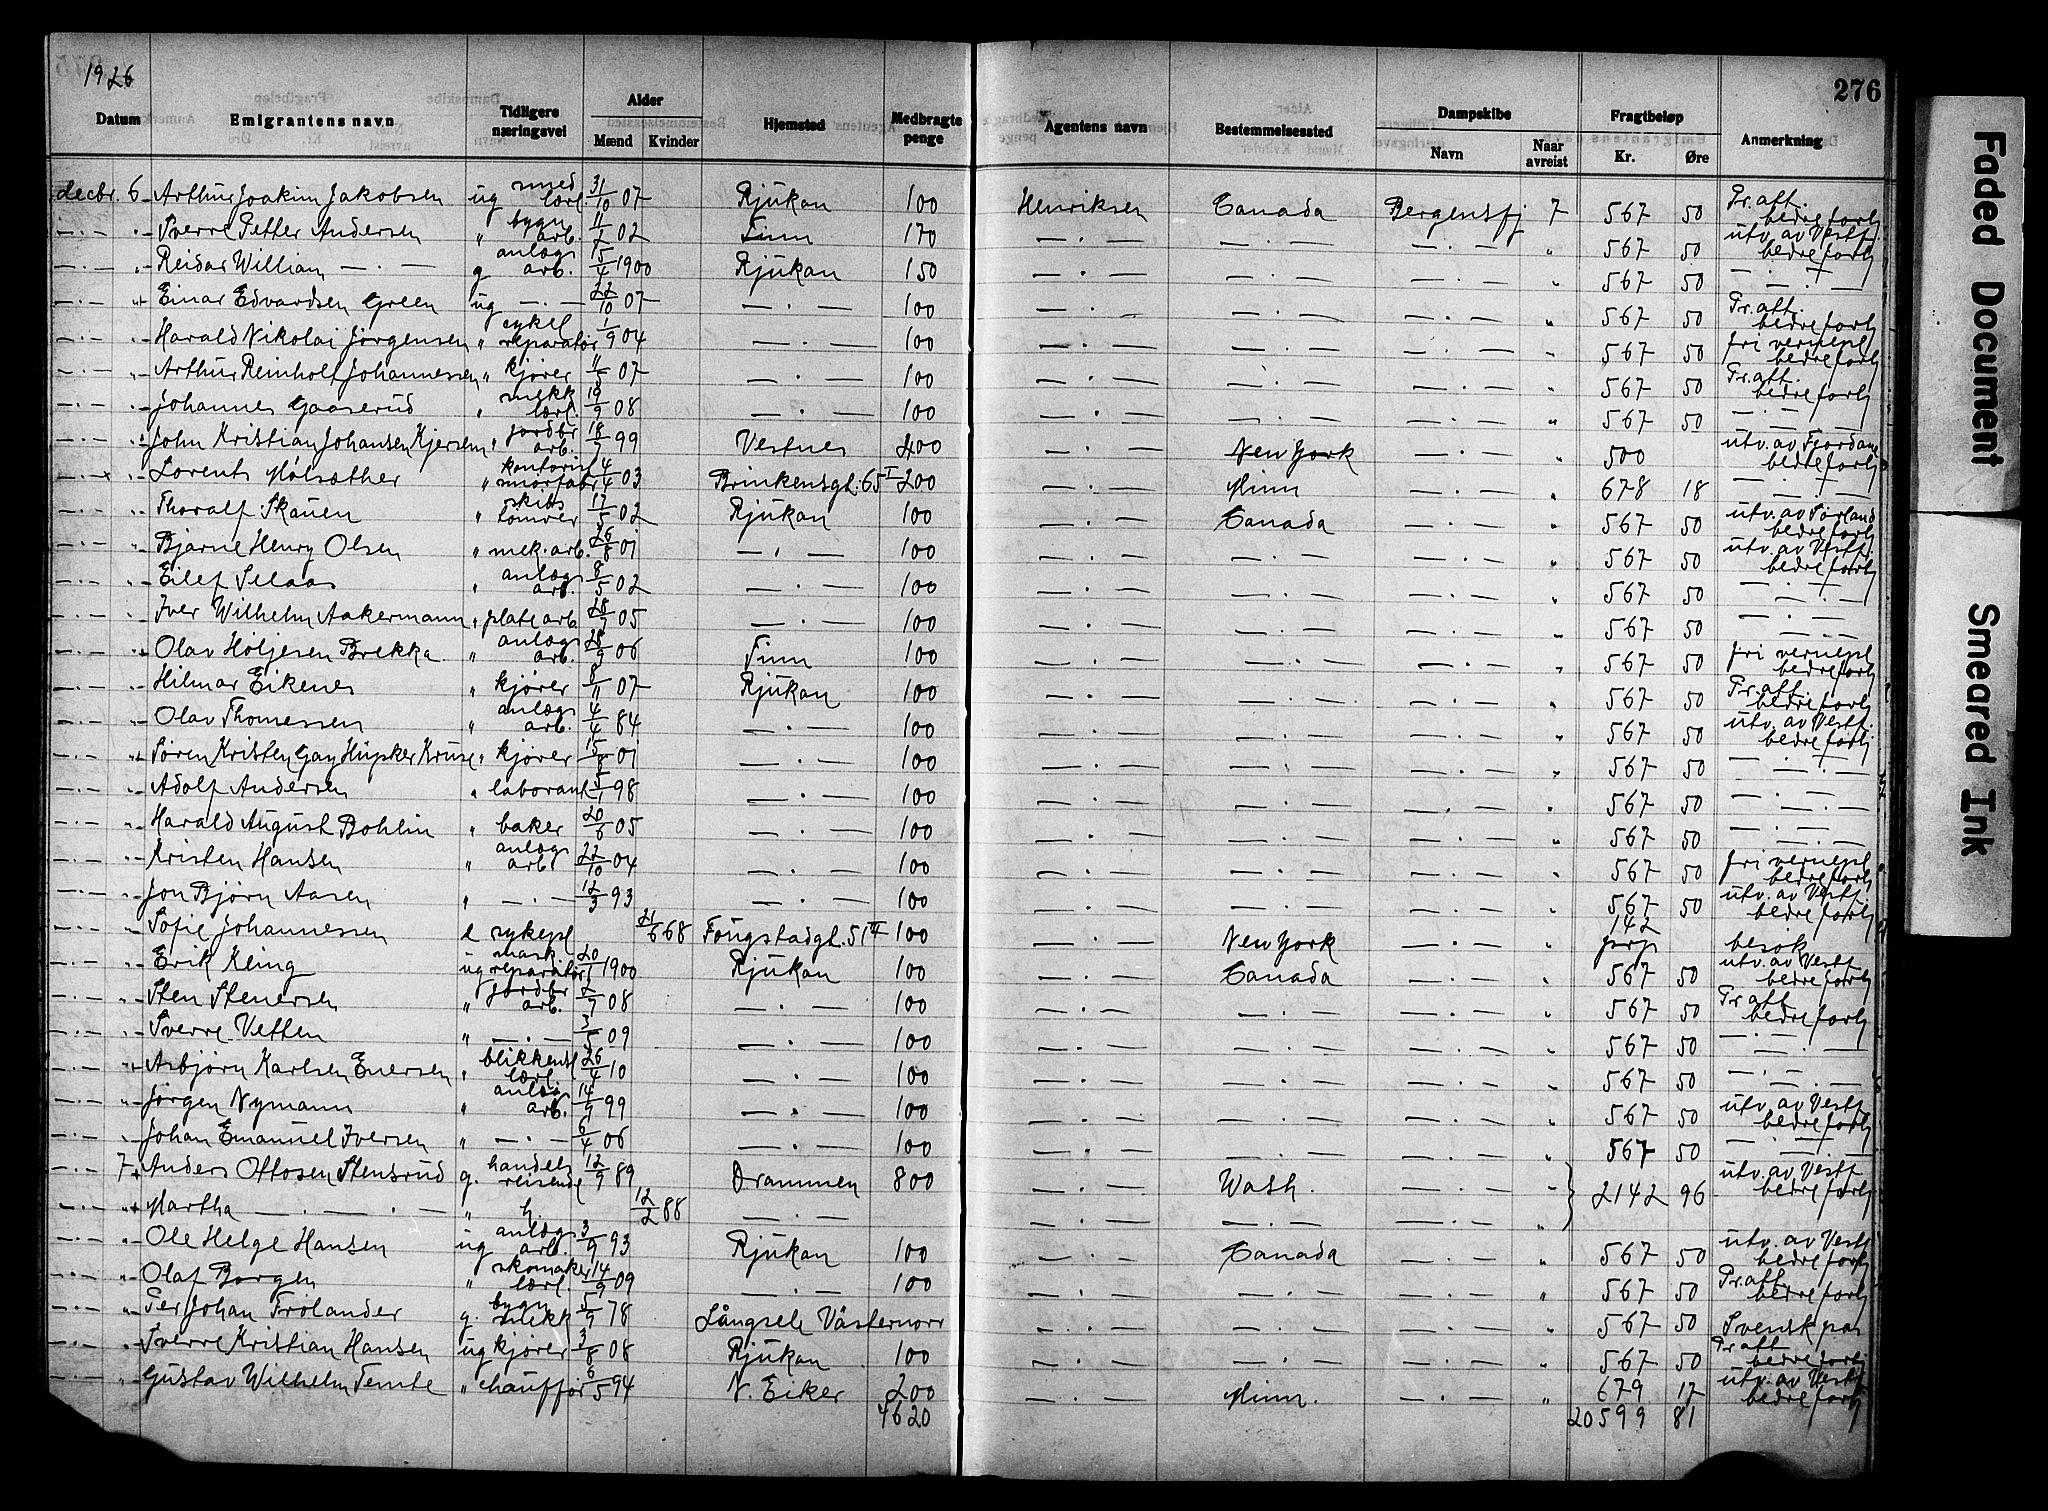 1926
276
Datum Emigrantens navn Tidligere næringsvei Alder Mænd Kvinder Hjemsted Medbragte penge Agentens navn Bestemmelsessted Dampskibe Navn Naar avreist Fragtbeløp Kr. Øre Anmerkning
decbr. 6 Arthur Joakim Jakobsen ug smed lærl. 31/10 07 Rjukan 100 Henriksen Canada Bergensfj 7 567 50 Pr. att. bedre forhj
—·— " Sverre Petter Andersen " bygn arb. 02 Tinn 170 —·— —·— —·— " 567 50 utv. av Vestf. bedre forhj
—·— " Reidar William —·— g anlægs arb. 15/4 1900 Rjukan 150 —·— —·— —·— " 567 50 —·—
—·— " Einar Edvardsen Green ug —·— 22/10 07 —·— 100 —·— —·— —·— " 567 50 Pr. att. bedre forhj
—·— " Harald Nikolai Jørgensen " cykel reparatør 1/9 04 —·— 100 —·— —·— —·— " 567 50 fri vernepl bedre forhj
—·— " Arthur Reinholt Johannessen " kjører 07 —·— 100 —·— —·— —·— " 567 50 Pr. att. bedre forhj
—·— " Johannes Gaaserud " mekk lærl. 19/9 08 —·— 100 —·— —·— —·— " 567 50 —·—
—·— " John Kristian Johansen Kjersem " jordbr arb. 18/7 99 Vestnes 400 —·— New York —·— " 500 utv. av Fjordane bedre forhj
—·— " Lorents Molsæther " kontorist smørfabr 4/4 03 Brinkensgt. 65 I 200 —·— Minn —·— " 678 18 —·—
—·— " Thoralf Skauen " skibs tømrer 17/5 02 Rjukan 100 —·— Canada —·— " 567 50 utv. av Sørland bedre forhj
—·— " Bjarne Henry Olsen " mek. arb. 26/8 01 —·— 100 —·— —·— —·— " 567 50 utv. av Vestf. bedre forhj
—·— " Eilef Selaas " anlægs arb. 8/5 02 —·— 100 —·— —·— —·— " 567 50 —·—
—·— " Iver Wilhelm Aakermann " plate arb. 28/7 05 —·— 100 —·— —·— —·— " 567 50 —·—
—·— " Olav Høljesen Brekka " anlægs arb. 28/9 06 Tinn 100 —·— —·— —·— " 567 50 fri vernepl bedre forhj
—·— " Hilmar Eikenes " kjører 8/11 07 Rjukan 100 —·— —·— —·— " 567 50 Pr. att. bedre forhj
—·— " Olav Thomessen " anlægs arb. 4/4 84 —·— 100 —·— —·— —·— " 567 50 utv. av Vestf. bedre forhj
—·— " Søren Kristen Gay Hupker Kruse " kjører 15/8 01 —·— 100 —·— —·— —·— " 567 50 —·—
—·— " Adolf Andersen " laborant 5/1 98 —·— 100 —·— —·— —·— " 567 50 —·—
—·— " Harald August Bohlin " baker 20/6 05 —·— 100 —·— —·— —·— " 567 50 —·—
—·— " Kristen Hansen " anlægs arb 22/10 04 —·— 100 —·— —·— —·— " 567 50 fri vernepl bedre forhj
—·— " Jon Bjørn Aasen " —·— 12/3 93 —·— 100 —·— —·— —·— " 567 50 utv. av Vestf. bedre forhj
—·— " Sofie Johannessen e sykepl 21/6 68 Fougstadgt. 51 IV 100 —·— New York —·— " 142 prp besøk
—·— " Erik Kling ug mask reparatør 20/1 1900 Rjukan 100 —·— Canada —·— " 567 50 utv. av Vestf bedre forhj
—·— " Sten Stenersen " jordbr arb. 2/9 08 —·— 100 —·— —·— —·— " 567 50 Pr. att bedre forhj
—·— " Sverre Vetten " —·— 3/5 09 —·— 100 —·— —·— —·— " 567 50 —·—
—·— " Asbjørn Karlsen Enersen " blikkensl lærl 26/4 10 —·— 100 —·— —·— —·— " 567 50 —·—
—·— " Jørgen Nymann " anlæg arb. 14/9 99 —·— 100 —·— —·— —·— " 567 50 utv. av Vestf bedre forhj
—·— " Johan Emanuel Iversen " —·— 6/4 06 —·— 100 —·— —·— —·— " 567 50 —·—
—·— 7 Anders Ottosen Stensrud g. handels reisende 12/9 89 Drammen 800 —·— Wash. —·— " 2142 96 utv. av Vestf bedre forhj
—·— " Martha —·— —·— " h. 12/2 88 —·— —·— —·— —·— "
—·— " Ole Helge Hansen ug anlægs arb. 3/9 93 Rjukan 100 —·— Canada —·— " 567 50 utv. av Vestf bedre forhj
—·— " Olaf Borgen " skomaker lærl. 14/9 09 —·— 100 —·— —·— —·— " 567 50 Pr. att. bedre forhj
—·— " Per Johan Frølander g. bygn mekk 5/9 78 Långsele Västernorr —·— —·— —·— " 567 50 Svensk pas
—·— " Sverre Kristian Hansen ug kjører 3/8 08 Rjukan 100 —·— —·— —·— " 567 50 Pr att bedre forhj
—·— " Gustav Wilhelm Temte " chauffør 6/5 94 N. Eiker 200 —·— Minn. —·— " 679 17 utv. av Vestf bedre forhj
4620 20599 81
Faded Document
Smeared Ink